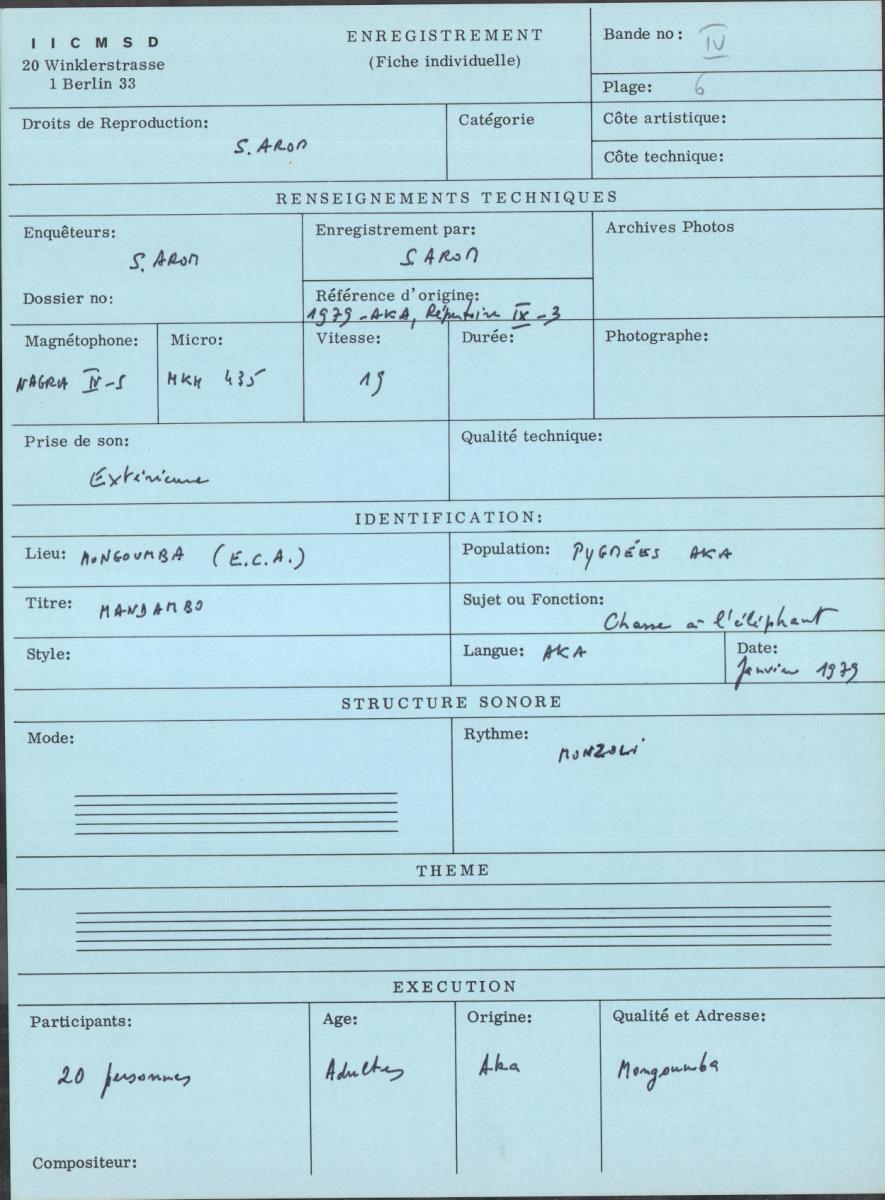 I I C M S D
20 Winklerstrasse
1 Berlin 33
ENREGISTREMENT
(Fiche individuelle)
Bande no: IV
Plage: 6
Droits de Reproduction:
S. AROM
Catégorie
Côte artistique:
Côte technique:
RENSEIGNEMENTS TECHNIQUES
Enquêteurs:
S. AROM
Dossier no:
Enregistrement par:
S. AROM
Référence d'origine:
1979-AKA, Répertoire IX-3
Archives Photos
Magnétophone:
NAGRA IV-S
Micro:
MKH 435
Vitesse:
19
Durée:
Photographe:
Prise de son:
Extérieure
Qualité technique:
IDENTIFICATION:
Lieu: MONGOUMBA (E.C.A.)
Population: PYGMÉES AKA
Titre: MANDAMBO
Sujet ou Fonction:
Chasse à l'éléphant
Style:
Langue: AKA
Date:
Janvier 1979
STRUCTURE SONORE
Mode:
Rythme:
MONZOLI
THEME
EXECUTION
Participants:
20 personnes
Age:
Adultes
Origine:
Aka
Qualité et Adresse:
Mongoumba
Compositeur: